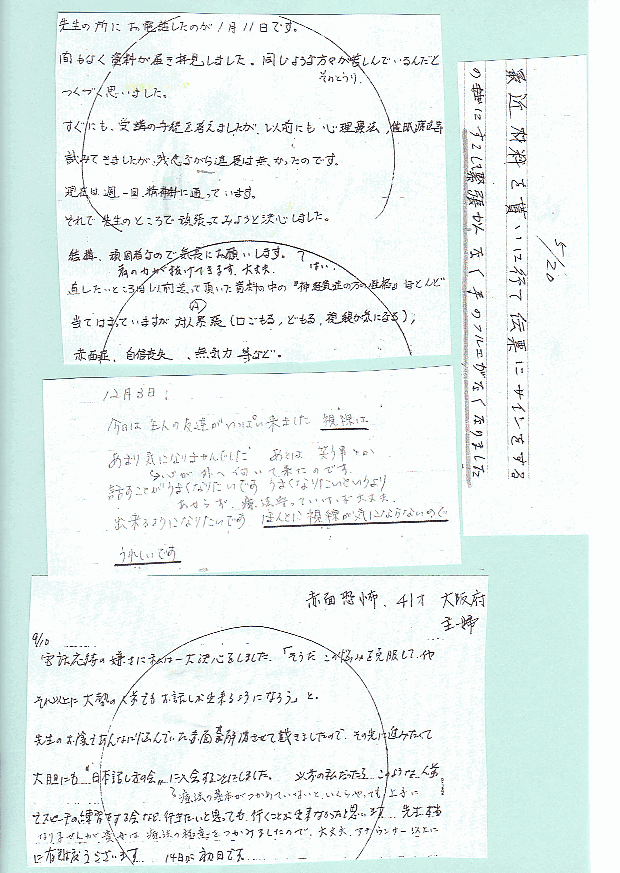 先生の所にお電話したのが1月11日です。
間もなく資料が届き拝見しました。同じような方々が苦しんでいるんだと
そのとうり、
つくづく思いました。
すぐにも、受講の手続を考えましたが、以前にも心理療法、催眠療法等
試みてきましたが、残念ながら進展は無かったのです。
現在は週一回、精神科に通っています。
それで先生のところで頑張ってみようと決心しました。
結構、頑固者なので気長にお願いします。
はい。
肩の力が抜けてきます、大丈夫、
直したいところは以前送って頂いた資料の中の『神経質症の方の性格』ほとんど
A
当てはまっていますが 対人緊張(口ごもる、どもる、視線が気になる)、
赤面症、自信喪失、無気力 等など。
5/20
最近 材料を貰いに行って伝票にサインをする
の時にすこし緊張がなく手のフルエがなくなりました
12月3日:
今日は主人の友達がいっぱい来ました 視線は
あまり気になりませんでした あとは 笑う事とか
が 外へ向いて来たのです。
話すことがうまくなりたいです うまくなりたいというより
あせらず、療法守っていけば大丈夫、
出来るようになりたいです ほんとに視線が気にならないので
うれしいです
赤面恐怖、41才 大阪府
主婦
9/10
電話応待の嫌さに私は一大決心をしました。「そうだ この悩みを克服して、
それ以上に大勢の人前でもお話しが出来るようになろう」と。
先生のお陰であんなに悩んでいた赤面を解消させて戴きましたので、その先に進みたくて
大胆にも "日本話し方の会" に入会することにしました。 以前の私だったら このような人前
療法の基本がつかめていないと、いくらやっても上手に
でスピーチの練習をする会など、行きたいと思っても、行くことが出来なかったと思います 先生
なりませんが 貴女は療法の極意をつかみましたので、大丈夫、アナウンサー以上に
に有難うございます 14日が初日です